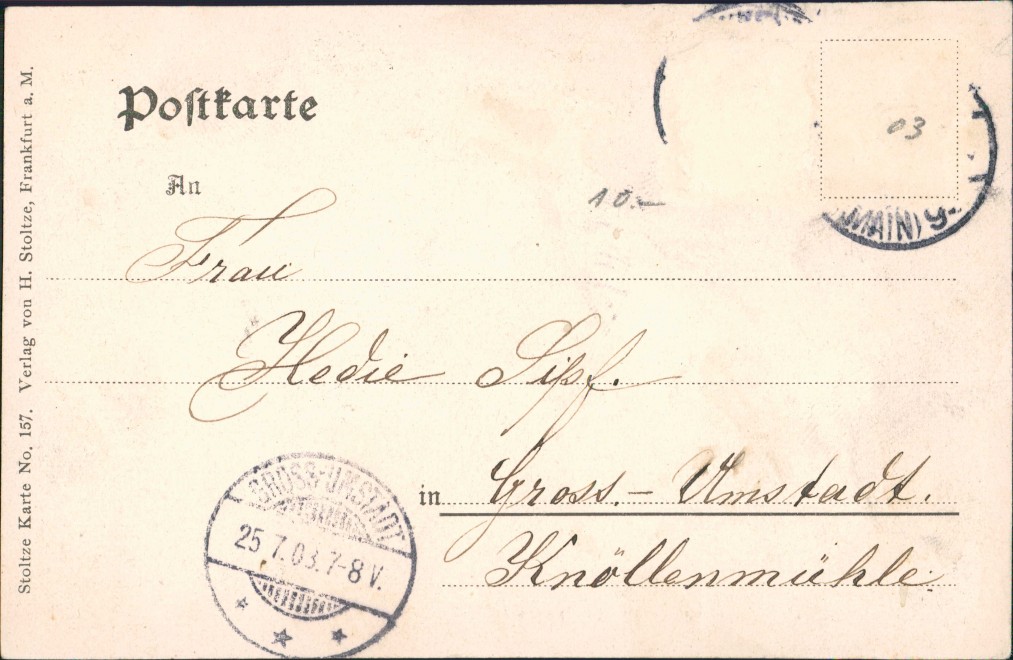 Postkarte
An
Frau
Hedie Sipf.
in Gross.- Umstadt.
Knöllenmühle.
10.-
03
(MAIN) 9.
GROSS-UMSTADT
25.7.03.7-8 V.
Stoltze Karte No. 157. Verlag von H. Stoltze, Frankfurt a. M.